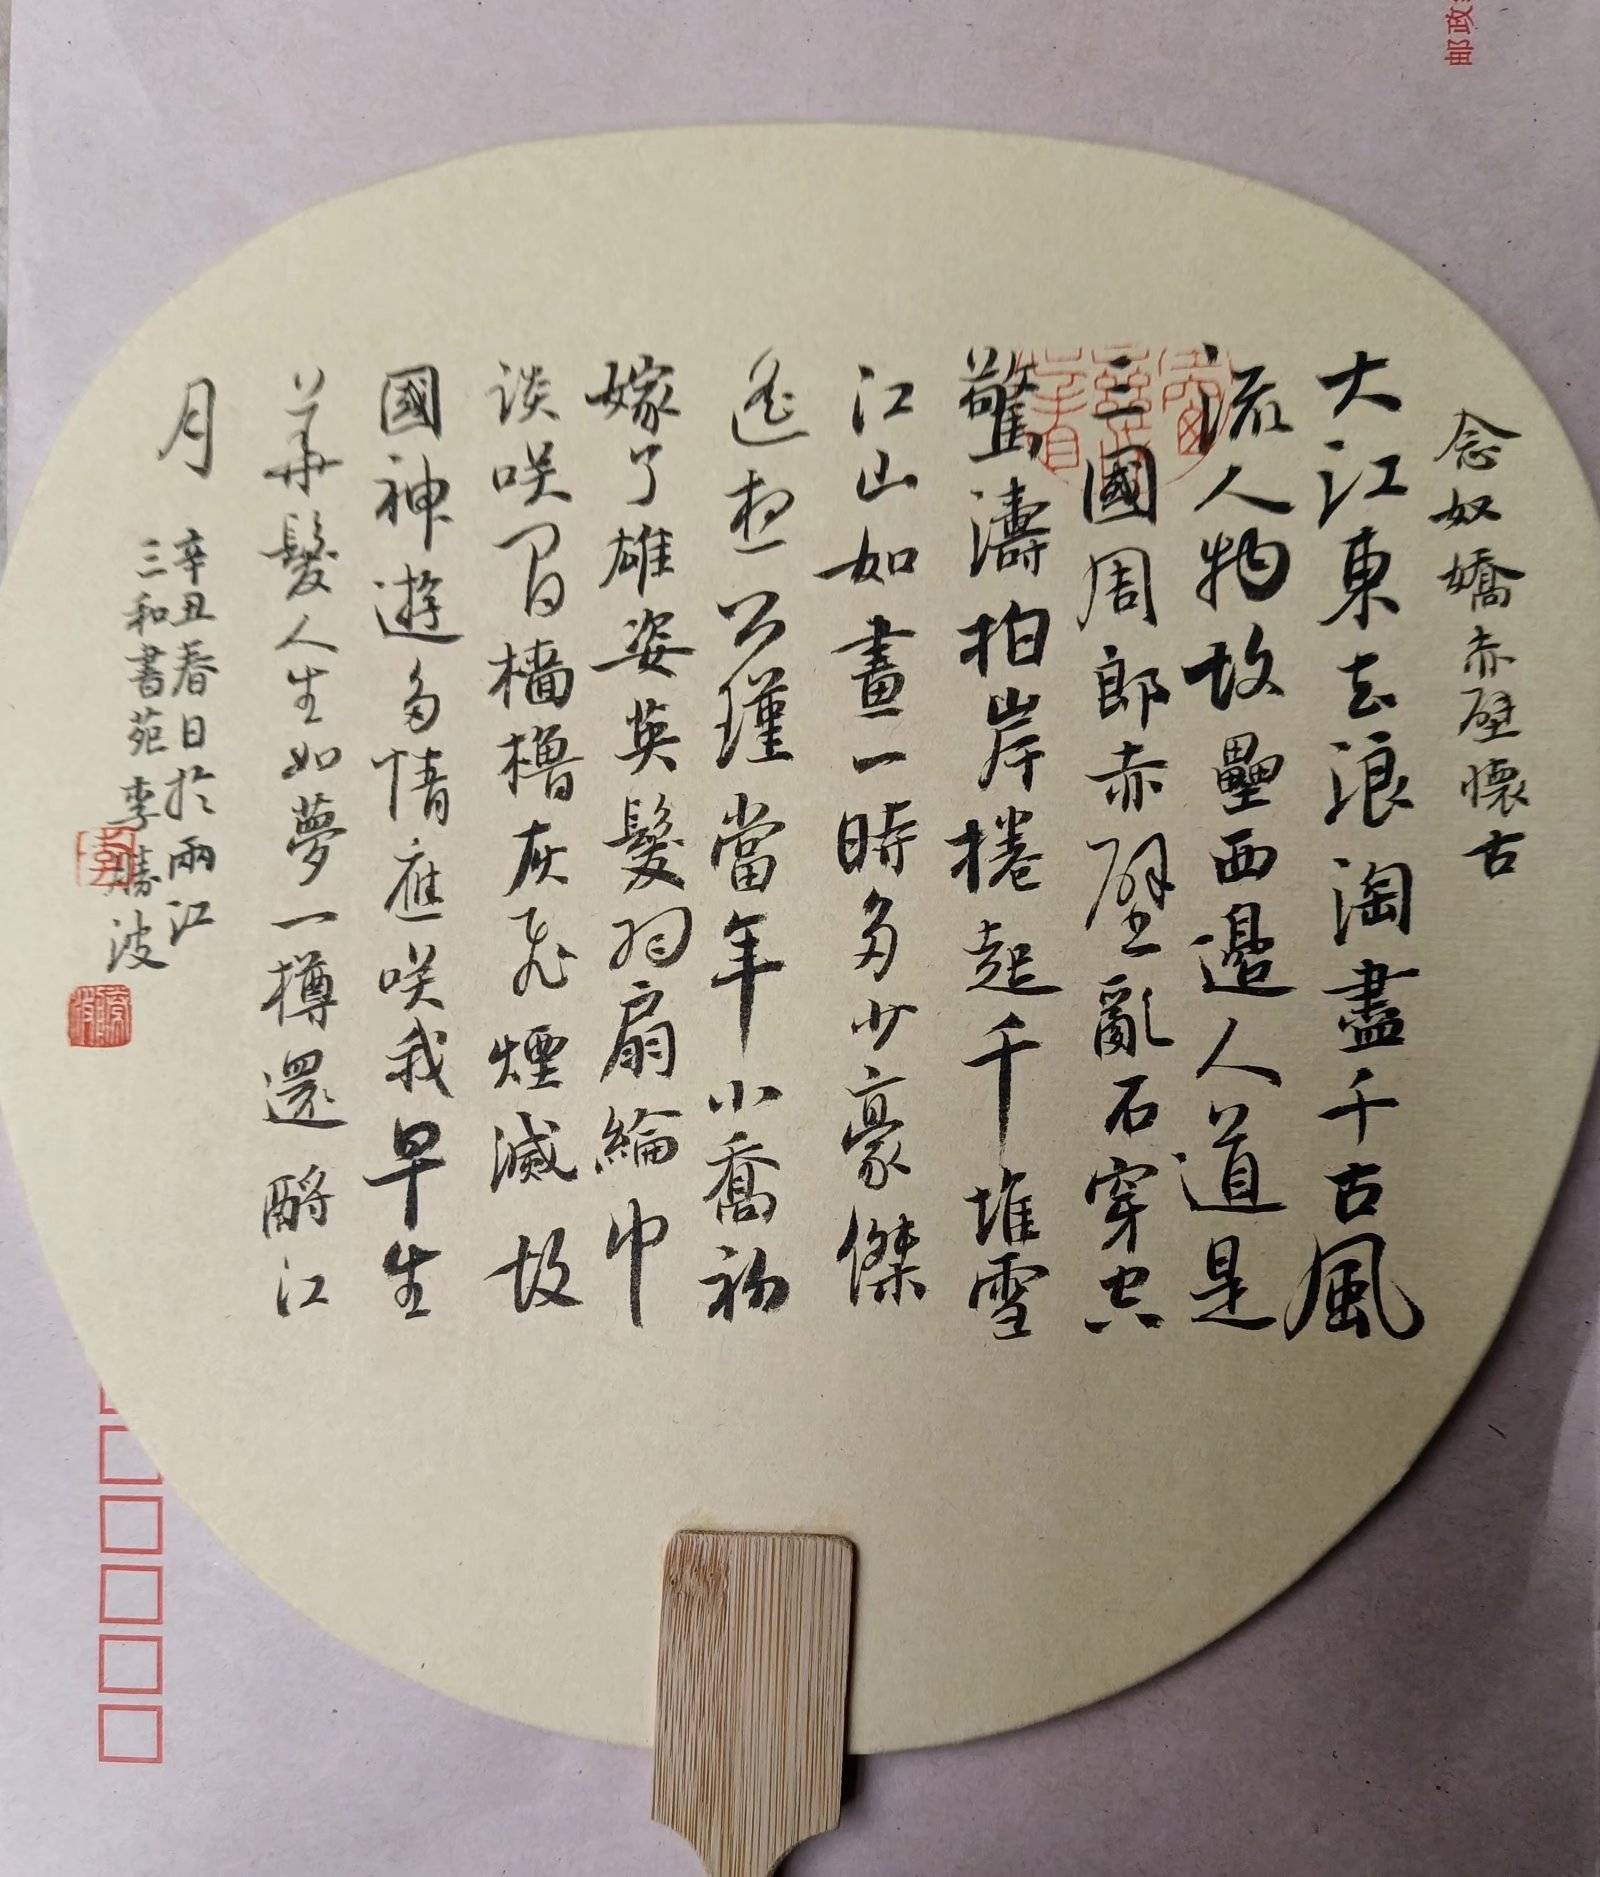 念奴嬌赤壁懷古
大江東去浪淘盡千古風
流人物故壘西邊人道是
三國周郎赤壁亂石穿空
驚濤拍岸捲起千堆雪
江山如畫一時多少豪傑
遙想公瑾當年小喬初
嫁了雄姿英髮羽扇綸巾
談咲間檣櫓灰飛煙滅故
國神遊多情應咲我早生
華髮人生如夢一樽還酹江
月
辛丑春日於兩江
三和書苑李勝波
邮政